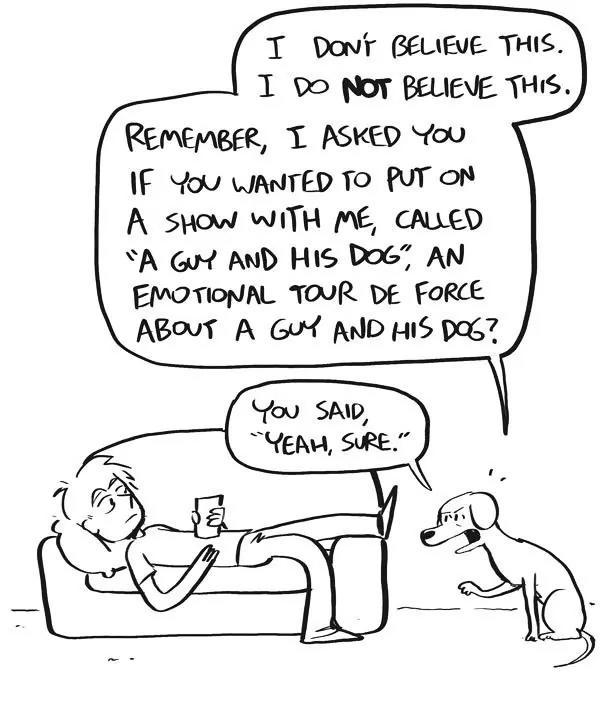 I DON'T BELIEVE THIS.
I DO NOT BELIEVE THIS.
REMEMBER, I ASKED YOU
IF YOU WANTED TO PUT ON
A SHOW WITH ME, CALLED
"A GUY AND HIS DOG", AN
EMOTIONAL TOUR DE FORCE
ABOUT A GUY AND HIS DOG?
YOU SAID,
"YEAH, SURE."